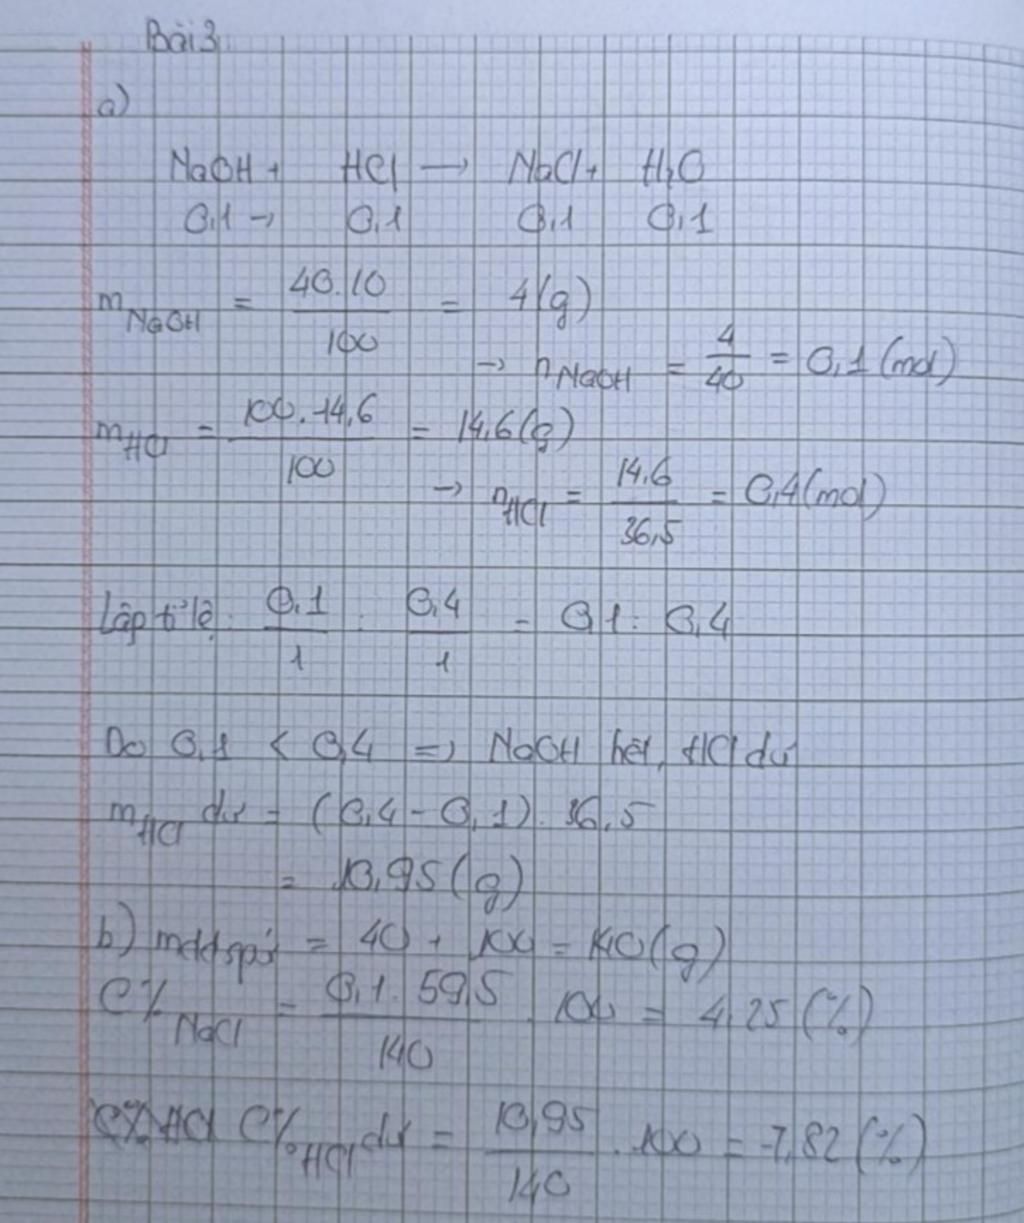 Bài 3
a)
NaOH + HCl → NaCl + H₂O
0,1 → 0,1 0,1 0,1
mNaOH = 40.10/100 = 4(g)
→ nNaOH = 4/40 = 0,1 (mol)
mHCl = 100.14,6/100 = 14,6(g)
→ nHCl = 14,6/36,5 = 0,4(mol)
Lập tỉ lệ: 0,1/1 : 0,4/1 = 0,1 : 0,4
Do 0,1 < 0,4 => NaOH hết, HCl dư
mHCl dư = (0,4 - 0,1). 36,5
= 10,95(g)
b) mddspứ = 40 + 100 = 140(g)
C%NaCl = 0,1. 59,5/140 . 100 = 4,25 (%)
C%HCl dư = 10,95/140 . 100 = 7,82 (%)